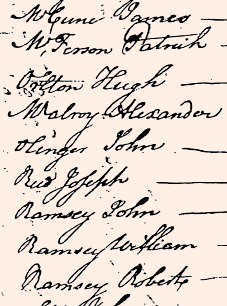 McCune James
McFerson Patrick
Orilton Hugh
Malroy Alexander
Olinger John
Reed Joseph
Ramsey John
Ramsey William
Ramsey Robert